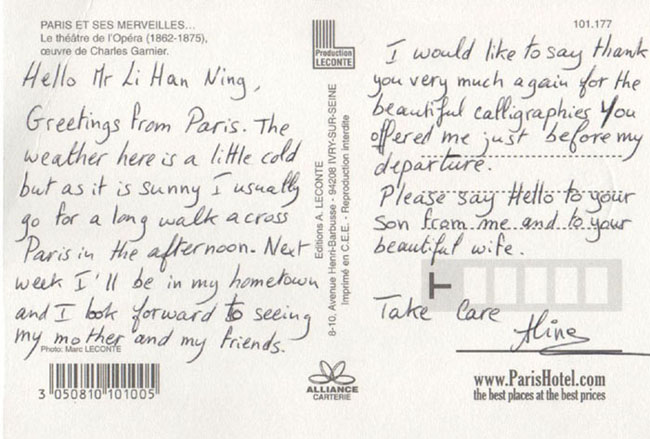 PARIS ET SES MERVEILLES...
Le théâtre de l'Opéra (1862-1875),
œuvre de Charles Garnier.
Hello Mr Li Han Ning,
Greetings from Paris. The
weather here is a little cold
but as it is sunny I usually
go for a long walk across
Paris in the afternoon. Next
week I'll be in my hometown
and I look forward to seeing
my mother and my friends.
Photo: Marc LECONTE
3 050810 101005
Production
LECONTE
Editions A. LECONTE
8-10, Avenue Henri-Barbusse - 94208 IVRY-SUR-SEINE
Imprimé en C.E.E. - Reproduction interdite
ALLIANCE
CARTERIE
101.177
I would like to say thank
you very much again for the
beautiful calligraphies You
offered me just before my
departure.
Please say Hello to your
son from me and to your
beautiful wife.
Take Care
Aline
www.ParisHotel.com
the best places at the best prices